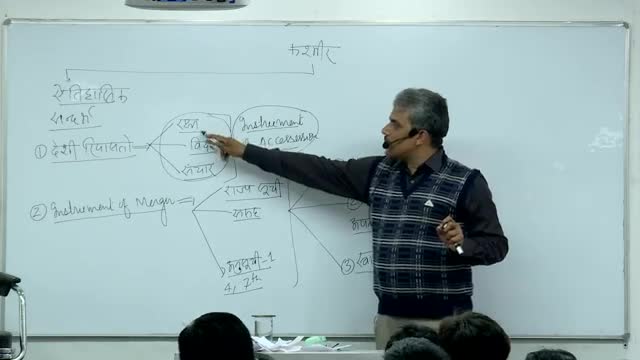 कश्मीर
ऐतिहासिक
सन्दर्भ
① देशी रियासतों
रक्षा
विदेश
संचार
Instrument
Accession
② Instrument of Merger
राज्य सूची
अनुसूची-1
4, 7th
②
③